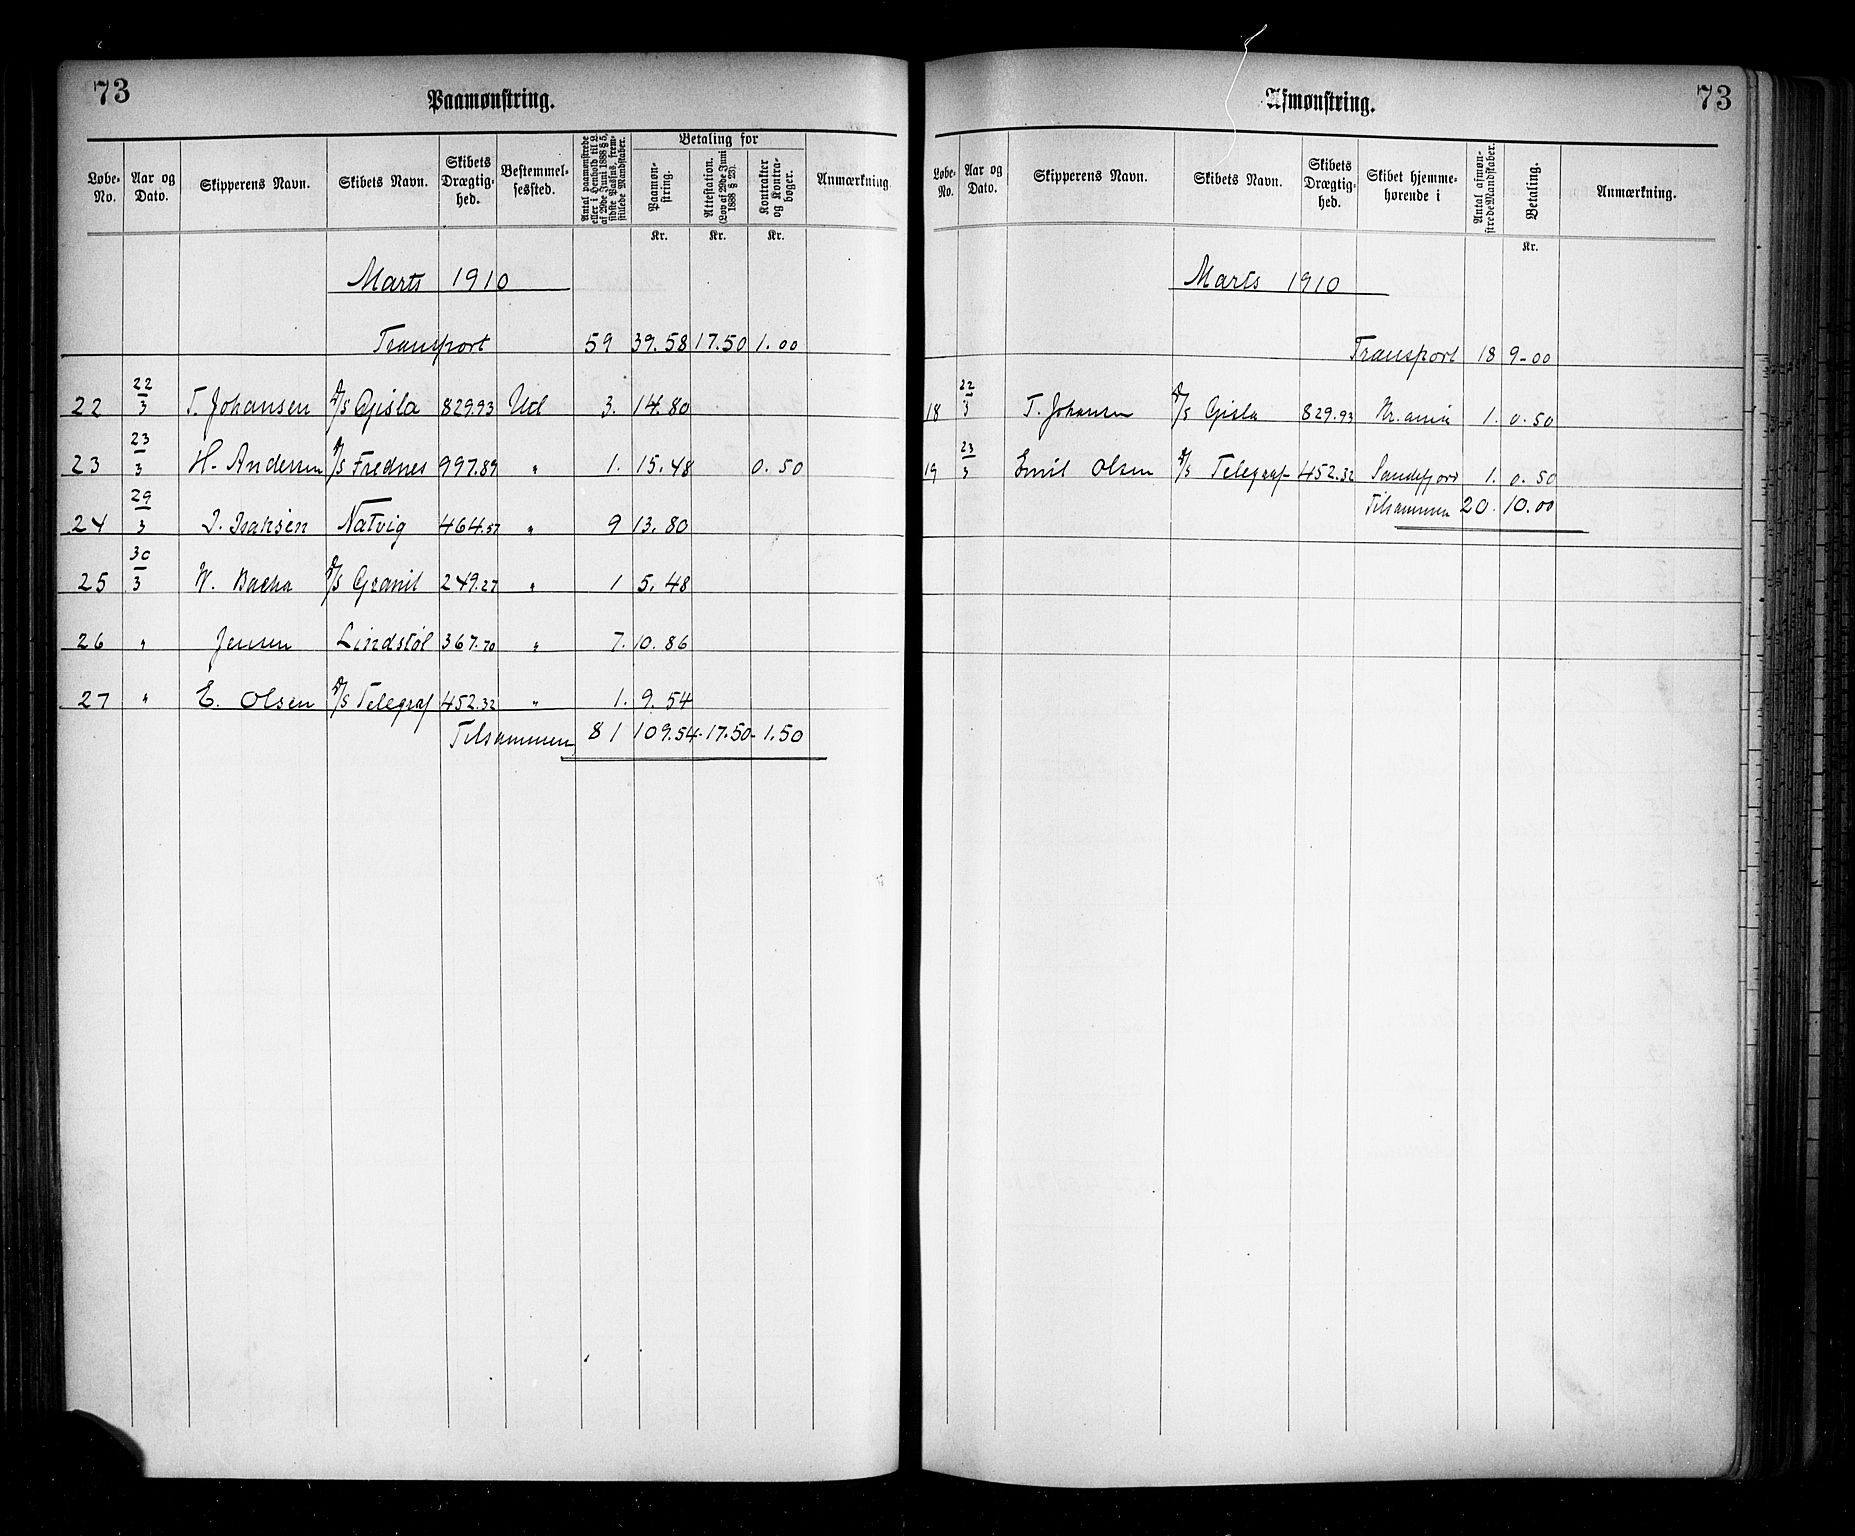 73
Paamønstring.
Løbe-No. Aar og Dato. Skipperens Navn. Skibets Navn. Skibets Drægtig-hed. Bestemmel-sessted. Antal paamønstrede eller i Henhold til L. af 29de Juni 1888 § 5, sidste Passus, frem-stillede Mandskaber. Betaling for Paamøn-string. Attestation. (Lov af 29de Juni 1888 § 23). Kontrakter og Kontra-bøger. Anmærkning
Kr. Kr. Kr.
Marts 1910
Transport 59 39.58 17.50 1.00
22 22/3 T. Johansen D/S Gisla 829.93 Ud 3. 14.80
23 23/3 H. Andersen D/S Frednes 997.89 " 1. 15.48 0.50
24 29/3 J. Isaksen Natvig 464.57 " 9 13.80
25 30/3 W. D/S Granit 249.27 " 1 5.48
26 " Jensen Lindstøl 367.70 " 7. 10.86
27 " E. Olsen D/S Telegraf 452.32 " 1. 9.54
Tilsammen 81 109.54 - 17.50 - 1.50
73
Afmønstring.
Løbe-No. Aar og Dato. Skipperens Navn. Skibets Navn. Skibets Drægtig-hed. Skibet hjemme-hørende i Antal afmøn-strede Mandskaber. Betaling. Anmærkning.
Kr.
Marts 1910
Transport 18 9-00
18 22/3 T. Johansen D/S Gisla 829.93 Kr.ania 1. 0.50
19 23/3 Emil Olsen D/S Telegraf 452.32 Sandefjord 1. 0.50
Tilsammen 20. 10.00